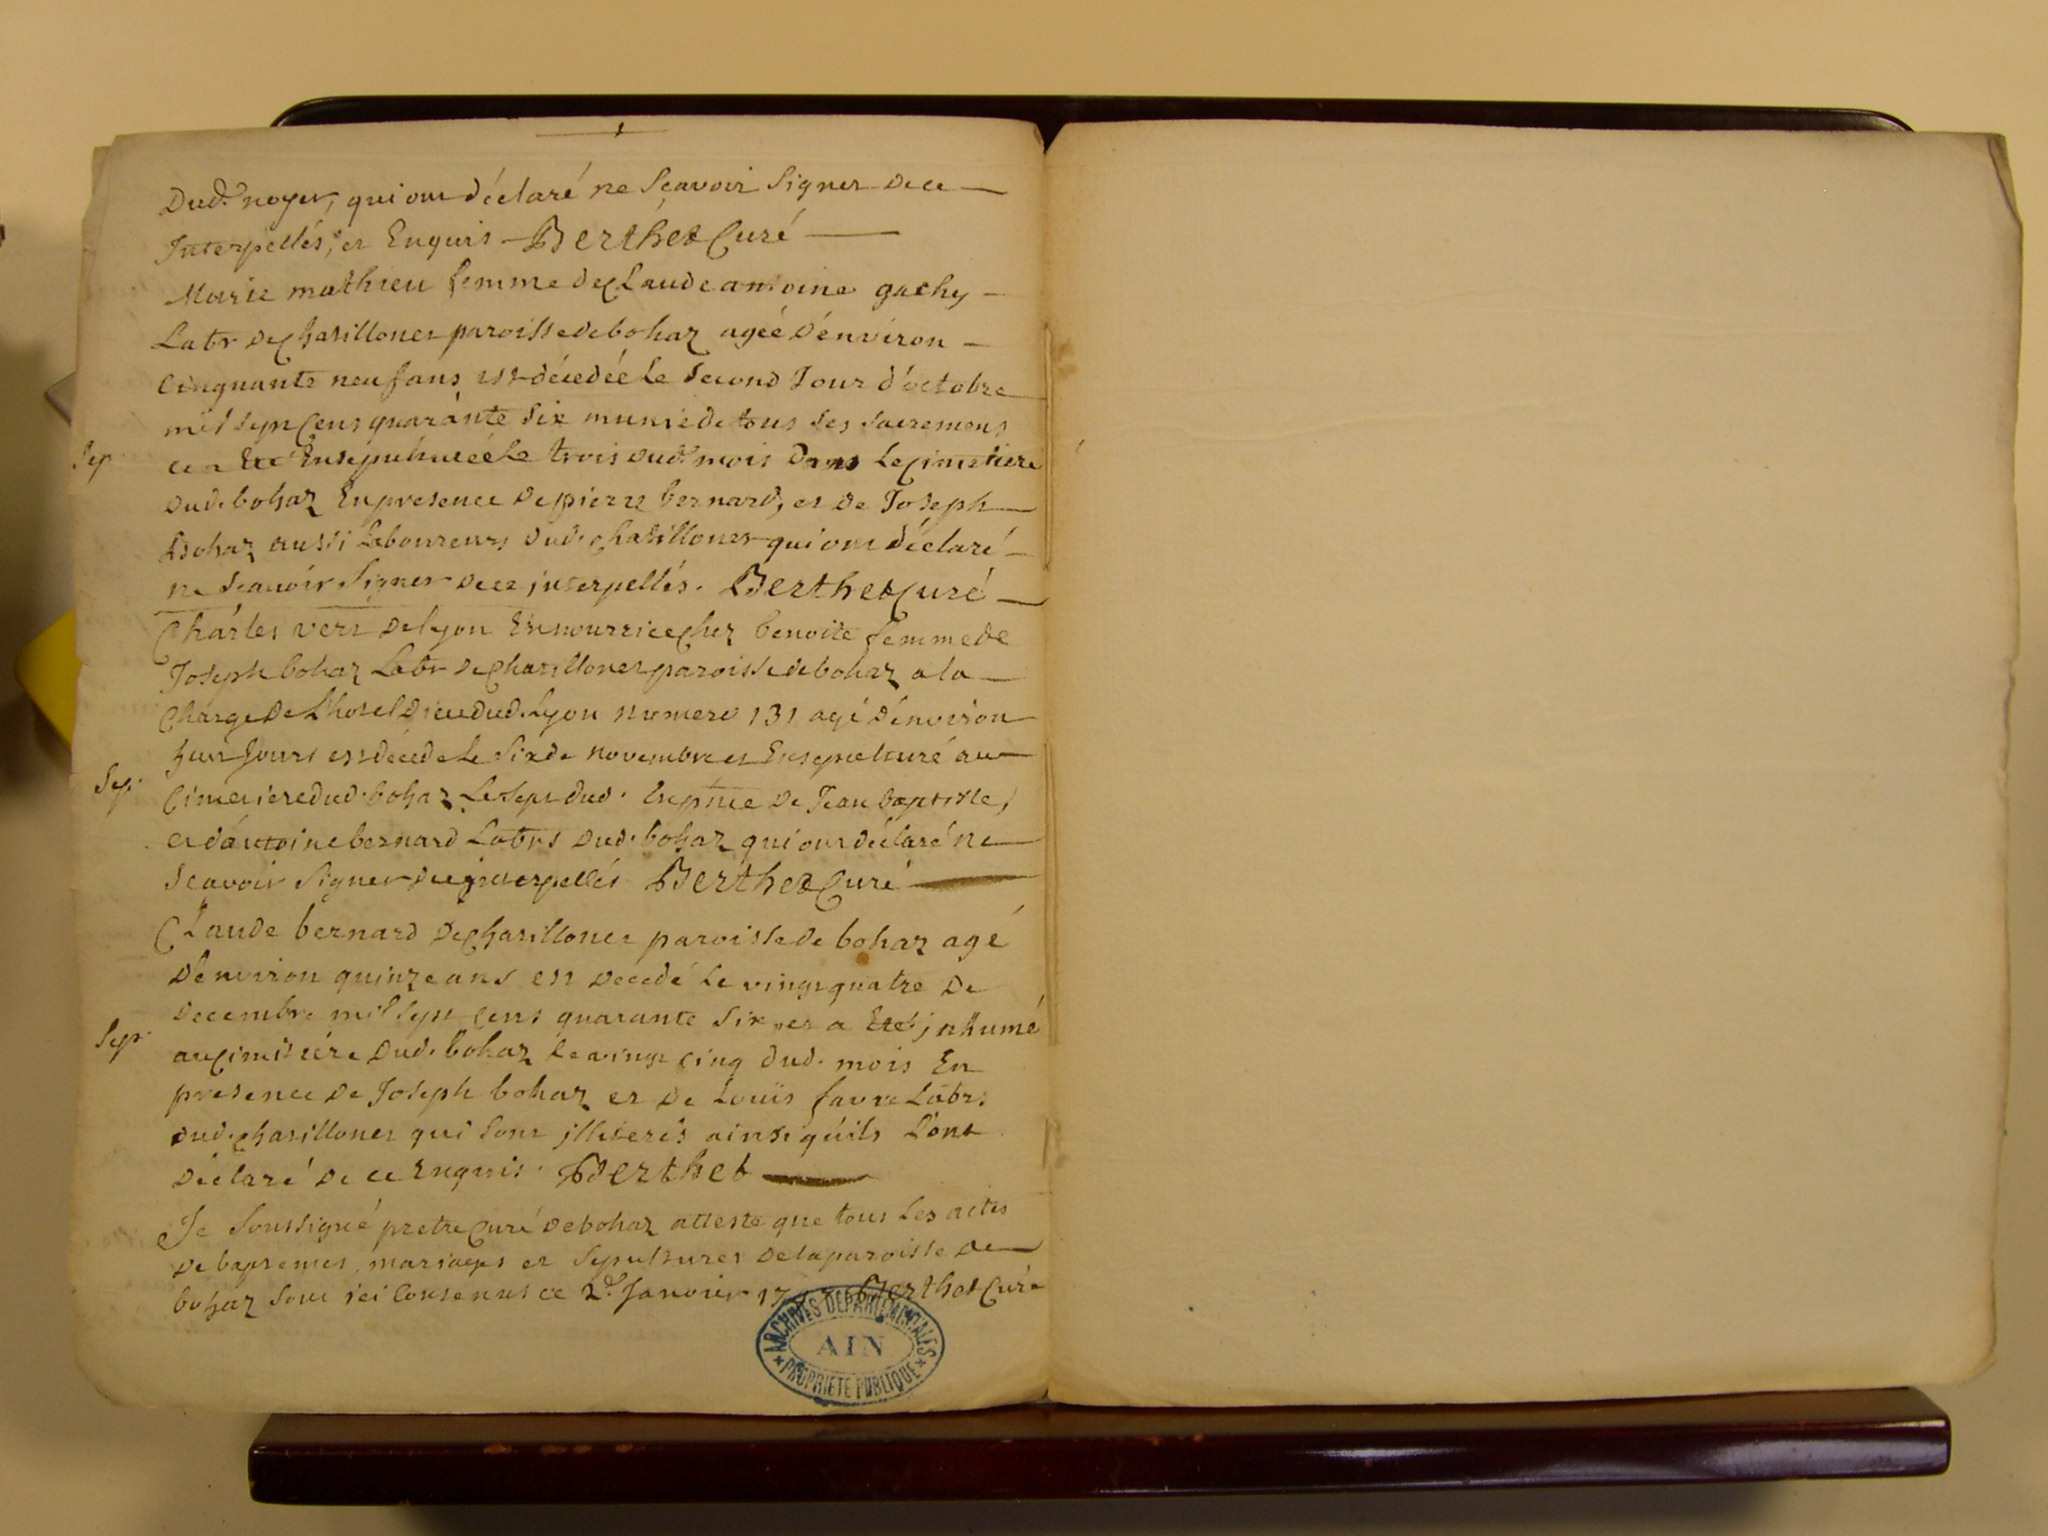 Dud. noyer, qui ont déclaré ne Sçavoir Signer de ce
Interpellés, et Enquis Berthet Curé
Marie mathieu femme de Claude antoine gachy
Labr de Chatillonet paroisse de bohaz agéé d'énviron
Cinquante neuf ans est décedéé le Second Jour d'octobre
mil Sept Cent quarante Six munie de tous Ses Sacremens
Sep.
et a Eté Ensepulturéé le trois dud. mois Dans le Cimetiere
dud. bohaz En presence de pierre bernard, et de Joseph
Bohaz aussi laboureurs dud. Chatillonet qui ont déclaré
ne Scavoir Signer de ce interpellés. Berthet Curé
Charles vert de lyon En nourrice chez benoite femme de
Joseph bohaz Labr de Chatillonet paroisse de bohaz a la
Charge de L'hotel Dieu dud. lyon numero 131 agé d'énviron
huit Jours est décedé le Six de novembre et Ensepulturé au
Sep.
Cimetiere dud. bohaz le Sept dud. En pnce de Jean baptiste,
et d'antoine bernard Labrs dud. bohaz qui ont déclaré ne
Scavoir Signer de ce interpellés Berthet Curé
Claude bernard de Chatillonet paroisse de bohaz agé
d'énviron quinze ans est décedé le vingt quatre de
decembre mil Sept Cent quarante Six et a Eté inhumé
Sep.
au Cimitiére dud. bohaz le vingt Cinq dud. mois En
presence de Joseph bohaz et de Louïs favre Labrs
dud. Chatillonet qui Sont illiterés ainsi qu'ils L'ont
déclaré de ce Enquis. Berthet
Je Soussigné pretre Curé de bohaz atteste que tous les actes
de baptemes, mariages et Sepultures de la paroisse de
bohaz Sont ici Contenus ce 2d. Janvier Berthet Curé
ARCHIVES DEPARTEMENTALES
AIN
PROPRIETE PUBLIQUE